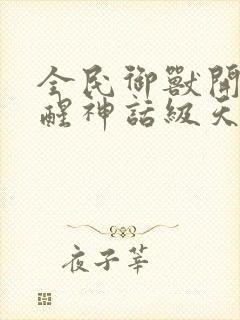 全民御獸開
醒神話級天
夜子莘